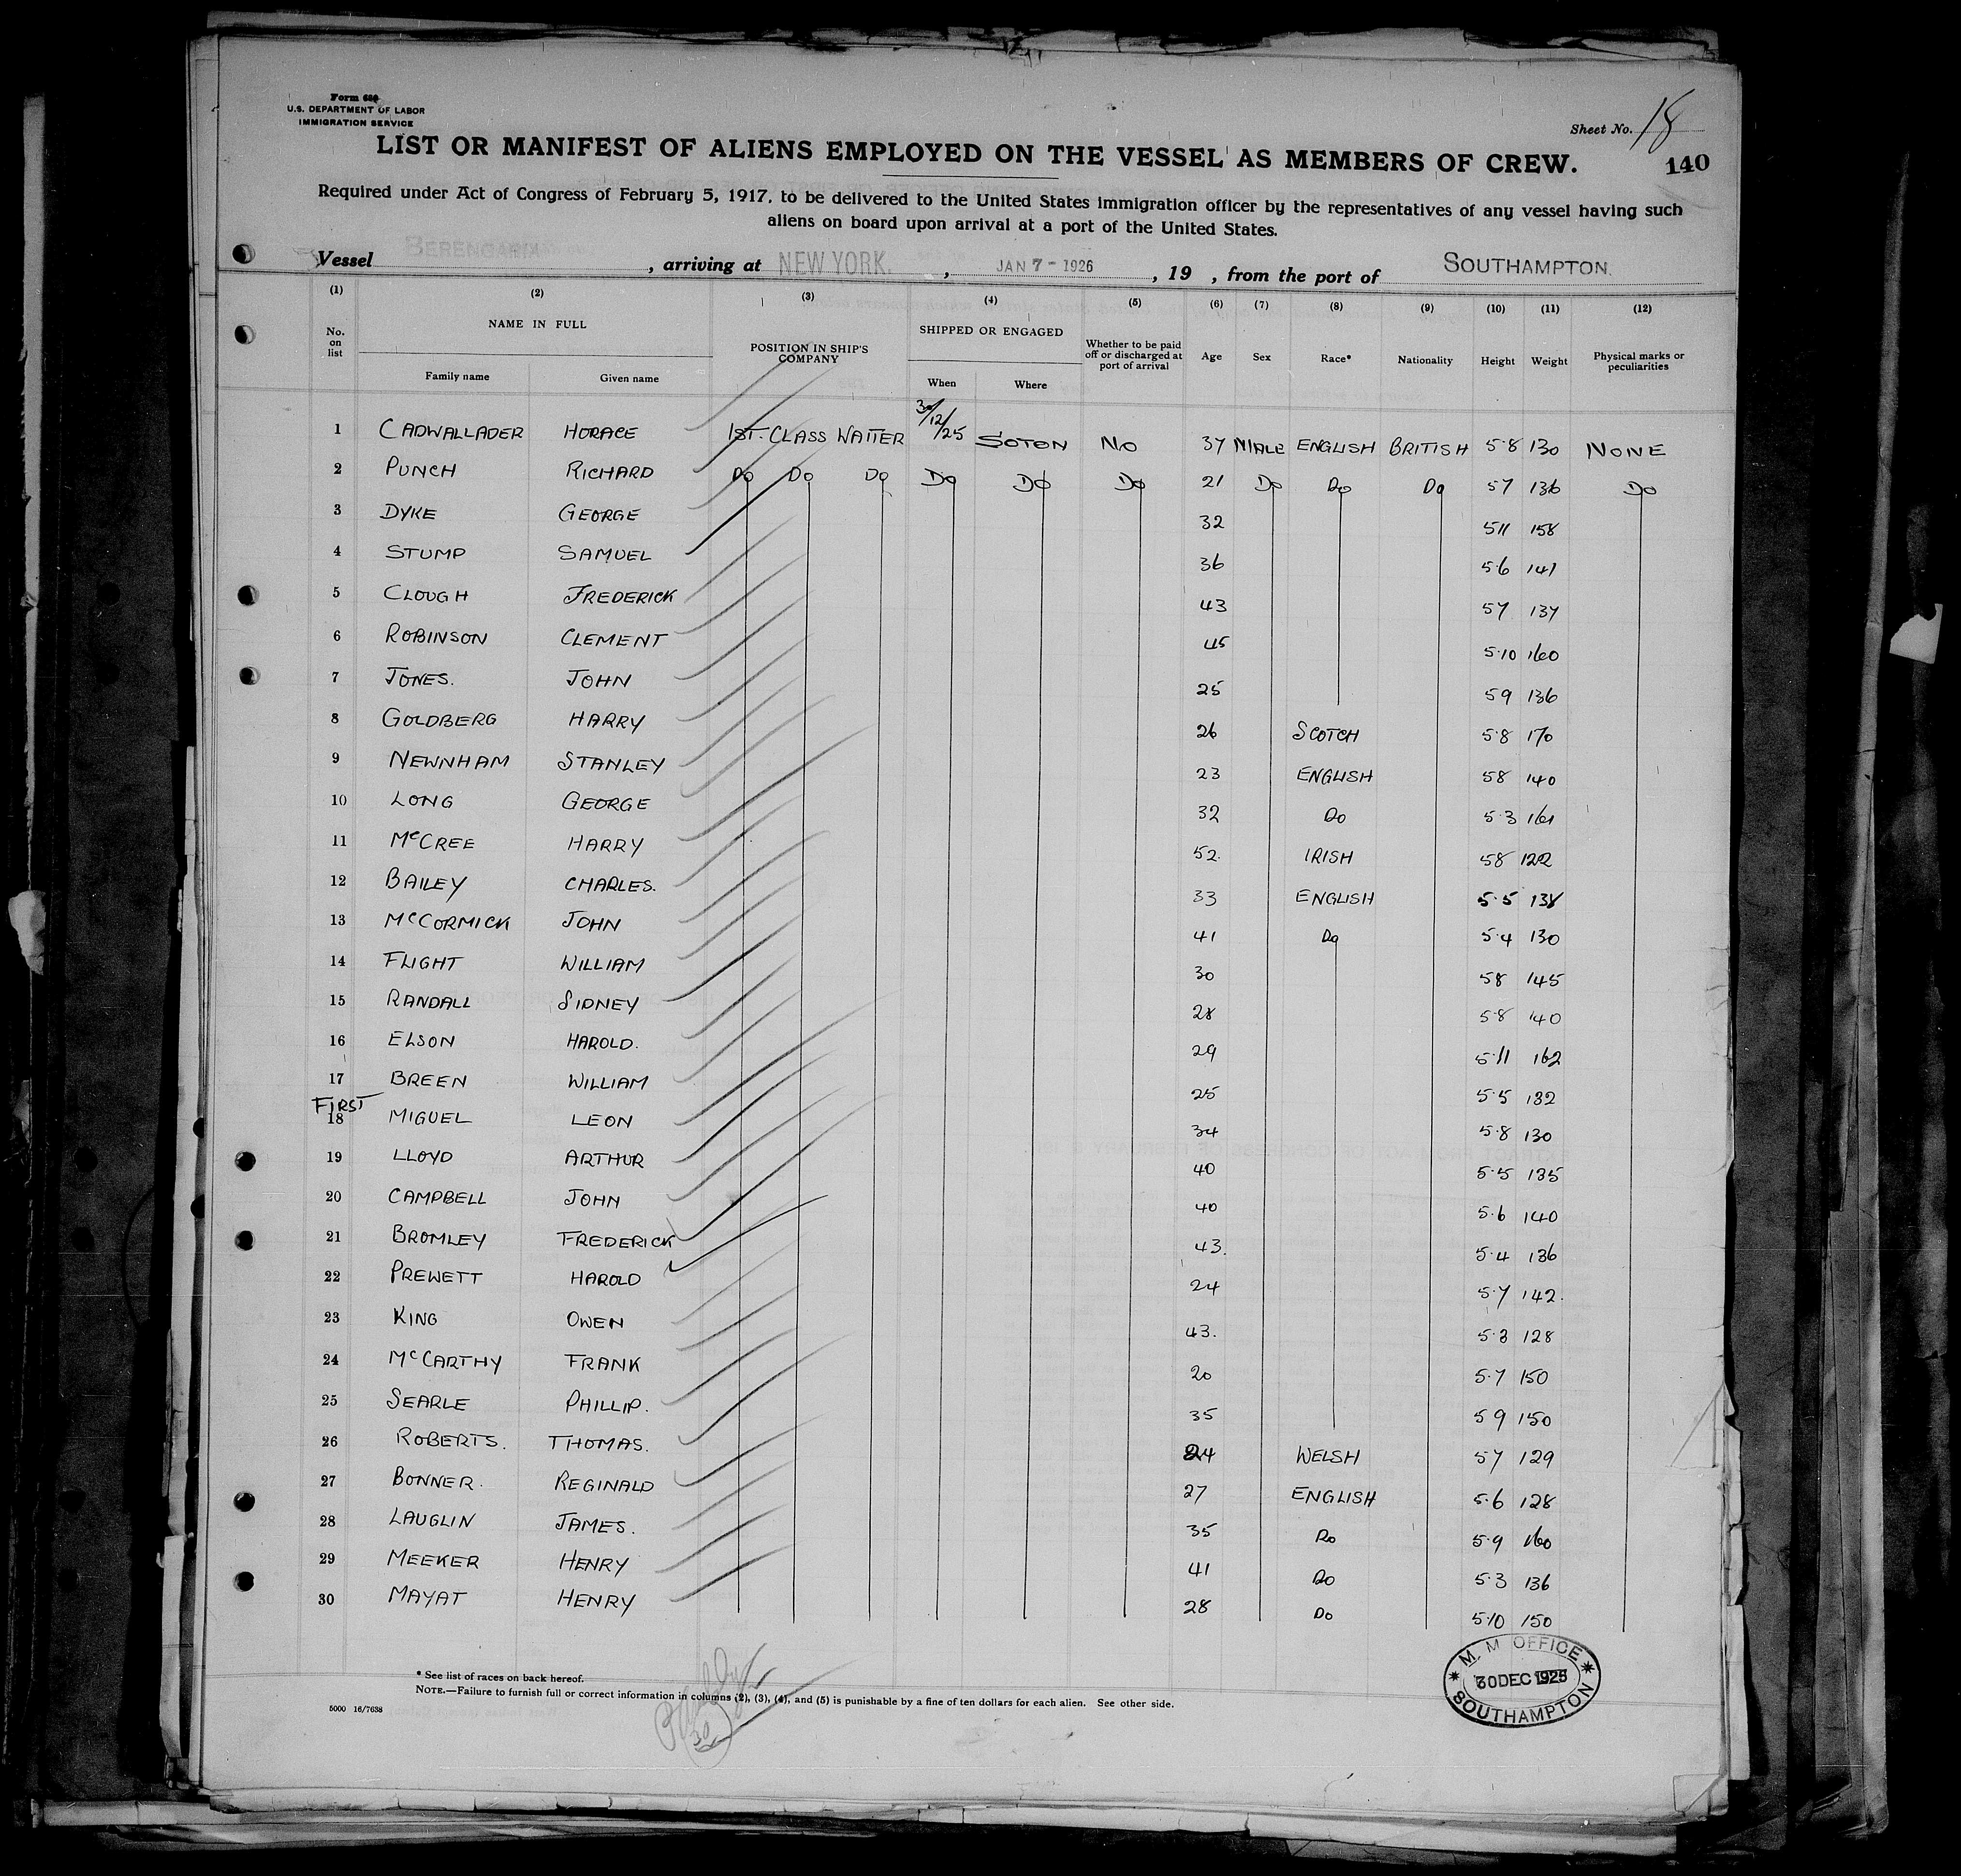 Form 680
U.S. DEPARTMENT OF LABOR
IMMIGRATION SERVICE
Sheet No. 18
LIST OR MANIFEST OF ALIENS EMPLOYED ON THE VESSEL AS MEMBERS OF CREW.
140
Required under Act of Congress of February 5, 1917, to be delivered to the United States immigration officer by the representatives of any vessel having such
aliens on board upon arrival at a port of the United States.
Vessel BERENGARIA, arriving at NEW YORK., JAN 7 - 1926, 19 , from the port of SOUTHAMPTON.
(1) (2) (3) (4) (5) (6) (7) (8) (9) (10) (11) (12)
No. on list NAME IN FULL Family name Given name POSITION IN SHIP'S COMPANY SHIPPED OR ENGAGED When Where Whether to be paid off or discharged at port of arrival Age Sex Race* Nationality Height Weight Physical marks or peculiarities
1 CADWALLADER HORACE 1ST. CLASS WAITER 30/12/25 SOTON NO 37 MALE ENGLISH BRITISH 5·8 130 NONE
2 PUNCH RICHARD DO DO DO DO DO DO 21 DO DO DO 57 136 DO
3 DYKE GEORGE 32 511 158
4 STUMP SAMUEL 36 5·6 141
5 CLOUGH FREDERICK 43 57 137
6 ROBINSON CLEMENT 45 5·10 160
7 JONES. JOHN 25 59 136
8 GOLDBERG HARRY 26 SCOTCH 5·8 170
9 NEWNHAM STANLEY 23 ENGLISH 58 140
10 LONG GEORGE 32 DO 5·3 161
11 McCREE HARRY 52. IRISH 58 122
12 BAILEY CHARLES. 33 ENGLISH 5·5 138
13 McCORMICK JOHN 41 DO 5·4 130
14 FLIGHT WILLIAM 30 58 145
15 RANDALL SIDNEY 28 5·8 140
16 ELSON HAROLD. 29 5·11 162
17 BREEN WILLIAM 25 5·5 132
FIRST
18 MIGUEL LEON 34 5·8 130
19 LLOYD ARTHUR 40 5·5 135
20 CAMPBELL JOHN 40 5·6 140
21 BROMLEY FREDERICK 43. 5·4 136
22 PREWETT HAROLD 24 5·7 142.
23 KING OWEN 43. 5·3 128
24 McCARTHY FRANK 20 5·7 150
25 SEARLE PHILLIP. 35 59 150
26 ROBERTS. THOMAS. 24 WELSH 57 129
27 BONNER. REGINALD 27 ENGLISH 5·6 128
28 LAUGLIN JAMES. 35 DO 5·9 160
29 MEEKER HENRY 41 DO 5·3 136
30 MAYAT HENRY 28 DO 5·10 150
* See list of races on back hereof.
NOTE.—Failure to furnish full or correct information in columns (2), (3), (4), and (5) is punishable by a fine of ten dollars for each alien. See other side.
5000 16/7638
30
M. M. OFFICE
30 DEC 1925
SOUTHAMPTON